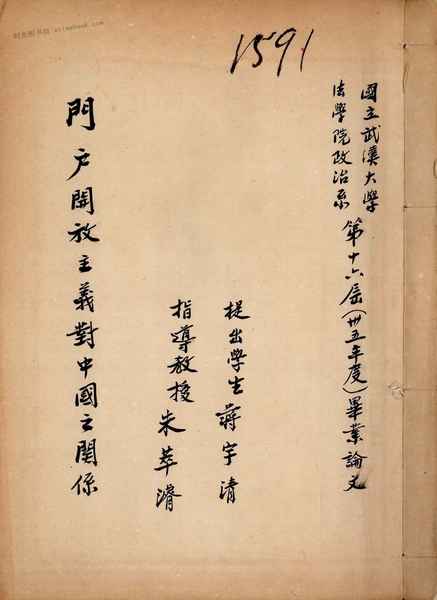 1591
國立武漢大學
法學院政治系
第十六屆(卅五年度)畢業論文
提出學生 蔣宇清
指導教授 朱萃濬
門戶開放主義對中國之關係